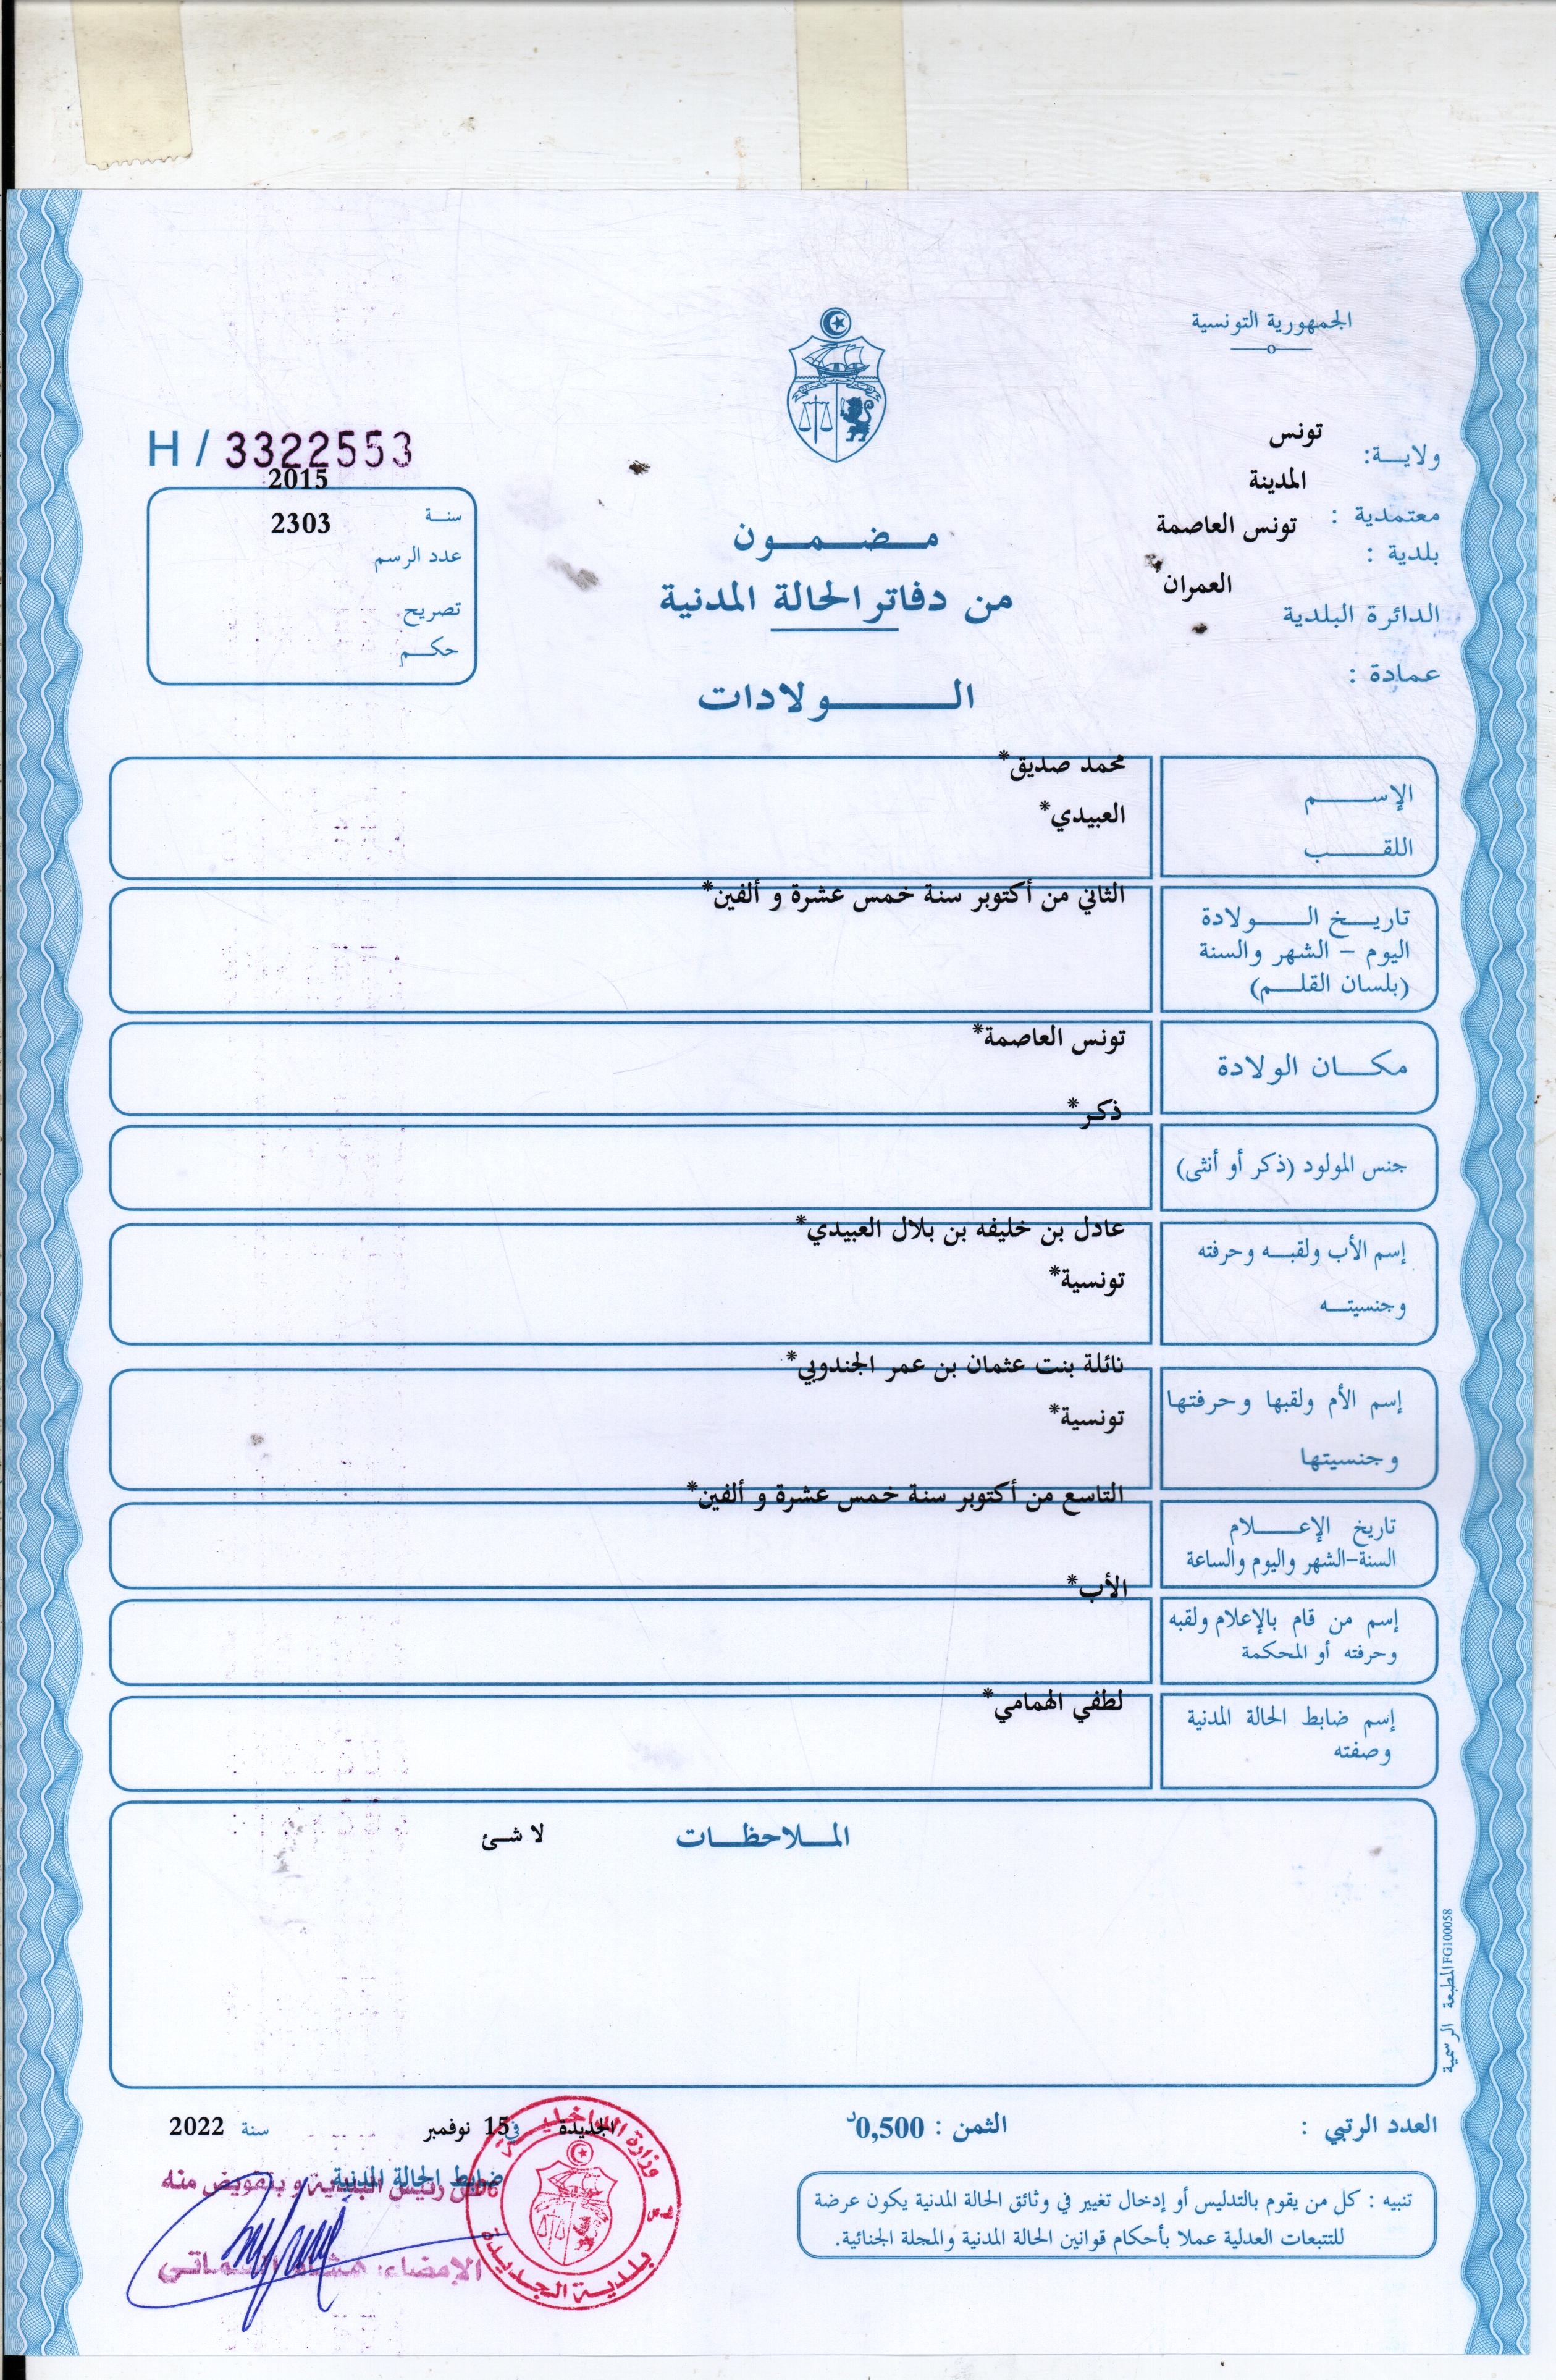 الجمهورية التونسية
ولايـــة: تونس
معتمدية : المدينة
بلدية : تونس العاصمة
الدائرة البلدية العمران
عمادة :
H / 3322553
سنــة 2015
عدد الرسم 2303
تصريح
حكــم
مــضــمــون
من دفاتر الحالة المدنية
الــــولادات
الإســــم محمد صديق*
اللقــــب العبيدي*
تاريــخ الــــولادة الثاني من أكتوبر سنة خمس عشرة و ألفين*
اليوم – الشهر والسنة
(بلسان القلــم)
مكــان الولادة تونس العاصمة*
جنس المولود (ذكر أو أنثى) ذكر*
إسم الأب ولقبــه وحرفته عادل بن خليفه بن بلال العبيدي*
وجنسيتــه تونسية*
إسم الأم ولقبها وحرفتها نائلة بنت عثمان بن عمر الجندوبي*
وجنسيتها تونسية*
تاريخ الإعــــلام التاسع من أكتوبر سنة خمس عشرة و ألفين*
السنة-الشهر واليوم والساعة
إسم من قام بالإعلام ولقبه الأب*
وحرفته أو المحكمة
إسم ضابط الحالة المدنية لطفي الهمامي*
وصفته
المــلاحظــات لا شئ
المطبعة الرسمية FG100058
العدد الرتبي :
الثمن : 0,500د
الجديدة في 15 نوفمبر سنة 2022
ضابط الحالة المدنية
رئيس البلدية و بتفويض منه
الإمضاء:
وزارة الداخلية
بلدية الجديدة
تنبيه : كل من يقوم بالتدليس أو إدخال تغيير في وثائق الحالة المدنية يكون عرضة
للتتبعات العدلية عملا بأحكام قوانين الحالة المدنية والمجلة الجنائية.